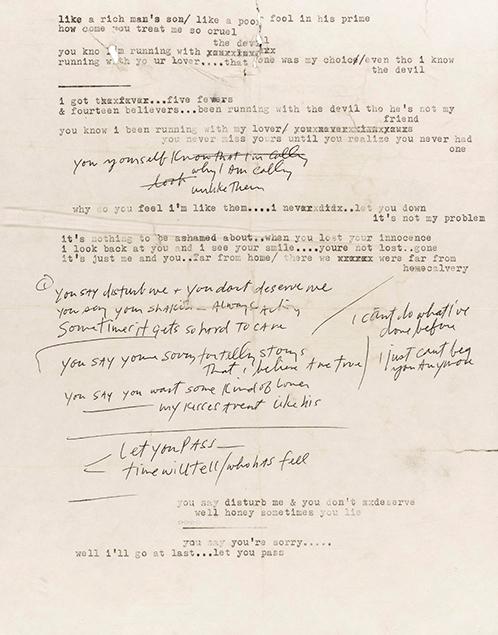 like a rich man's son/ like a poor fool in his prime
how come you treat me so cruel
the devil
you kno i'm running with
running with yo ur lover....that one was my choice/even tho i know
the devil
i got ...five fevers
& fourteen believers...been running with the devil tho he's not my
friend
you know i been running with my lover/
you never miss yours until you realize you never had
one
you yourself know that I'm calling
look why I am calling
unlike them
why do you feel i'm like them....i never ..let you down
it's not my problem
it's nothing to be ashamed about..when you lost your innocence
i look back at you and i see your smile....youre not lost..gone
it's just me and you..far from home/ there we xxxxxx were far from
calvery
You say disturb me & you dont deserve me
you say your shakin – Always Acting
Sometimes it gets so hard to care
i cant do what i've
done before
i just cant beg
you Anymore
you say youre sorry for telling storys
that i believe Are true
you say you want some Kind of lover
my kisses arent like his
Let you PASS
time will tell/who has fell
you say disturb me & you don't xxdeserve
well honey sometimes you lie
you say you're sorry.....
well i'll go at last...let you pass